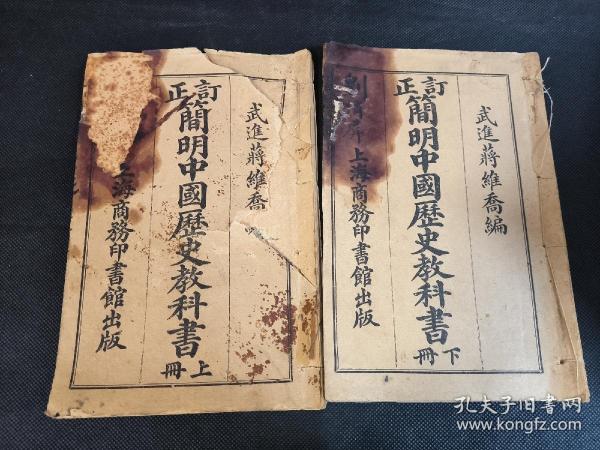 武進蔣維喬
訂正
簡明中國歷史教科書
上冊
上海商務印書館出版
武進蔣維喬編
訂正
簡明中國歷史教科書
下冊
上海商務印書館出版
孔夫子旧书网
www.kongfz.com